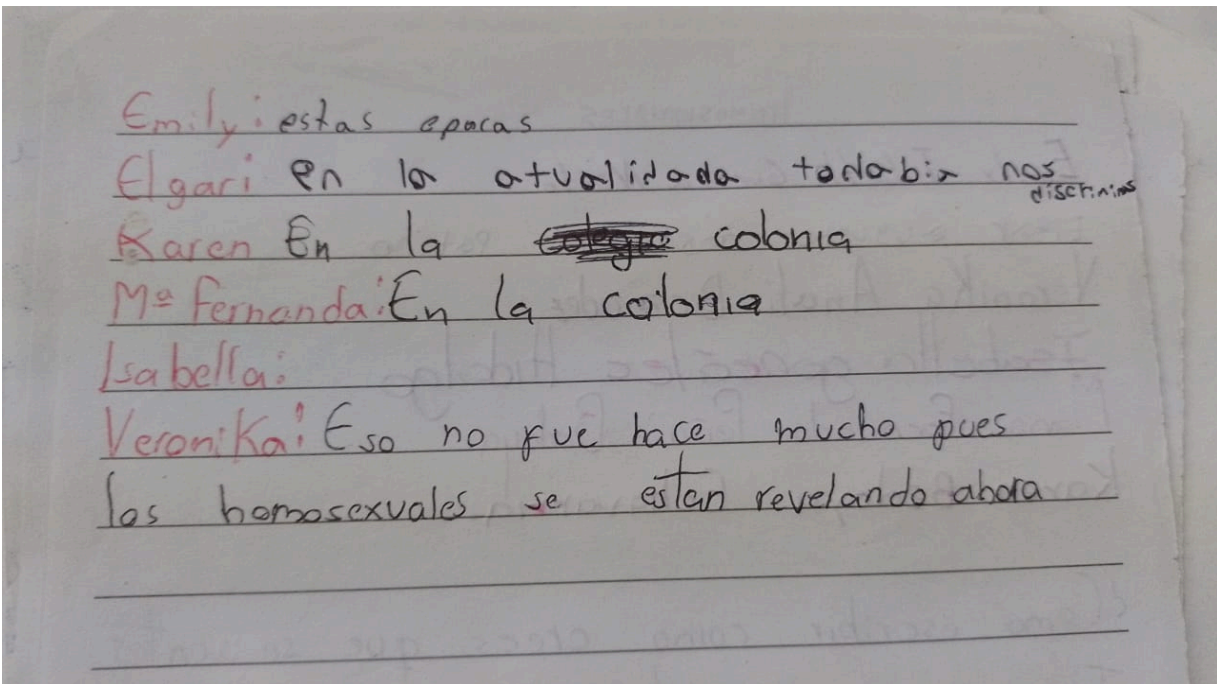 Emily: estas epocas
Elgari en la atualidada todabia nos discrimina
Karen En la colonia
Mª Fernanda: En la colonia
Isabella:
Veronika: Eso no fue hace mucho pues
los homosexuales se estan revelando ahora